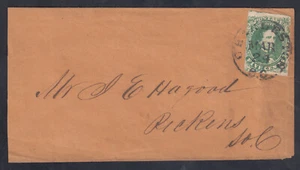 Mr J E Hagood
Pickens
So C